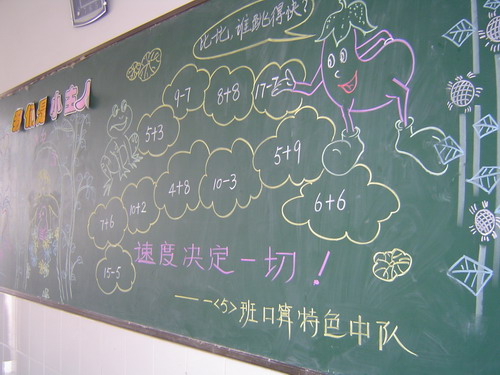 比一比，谁跳得快？
小主人
9-7
8+8
5+3
5+9
4+8
10-3
6+6
10+2
7+6
15-5
速度决定一切！
——一<5>班口算特色中队